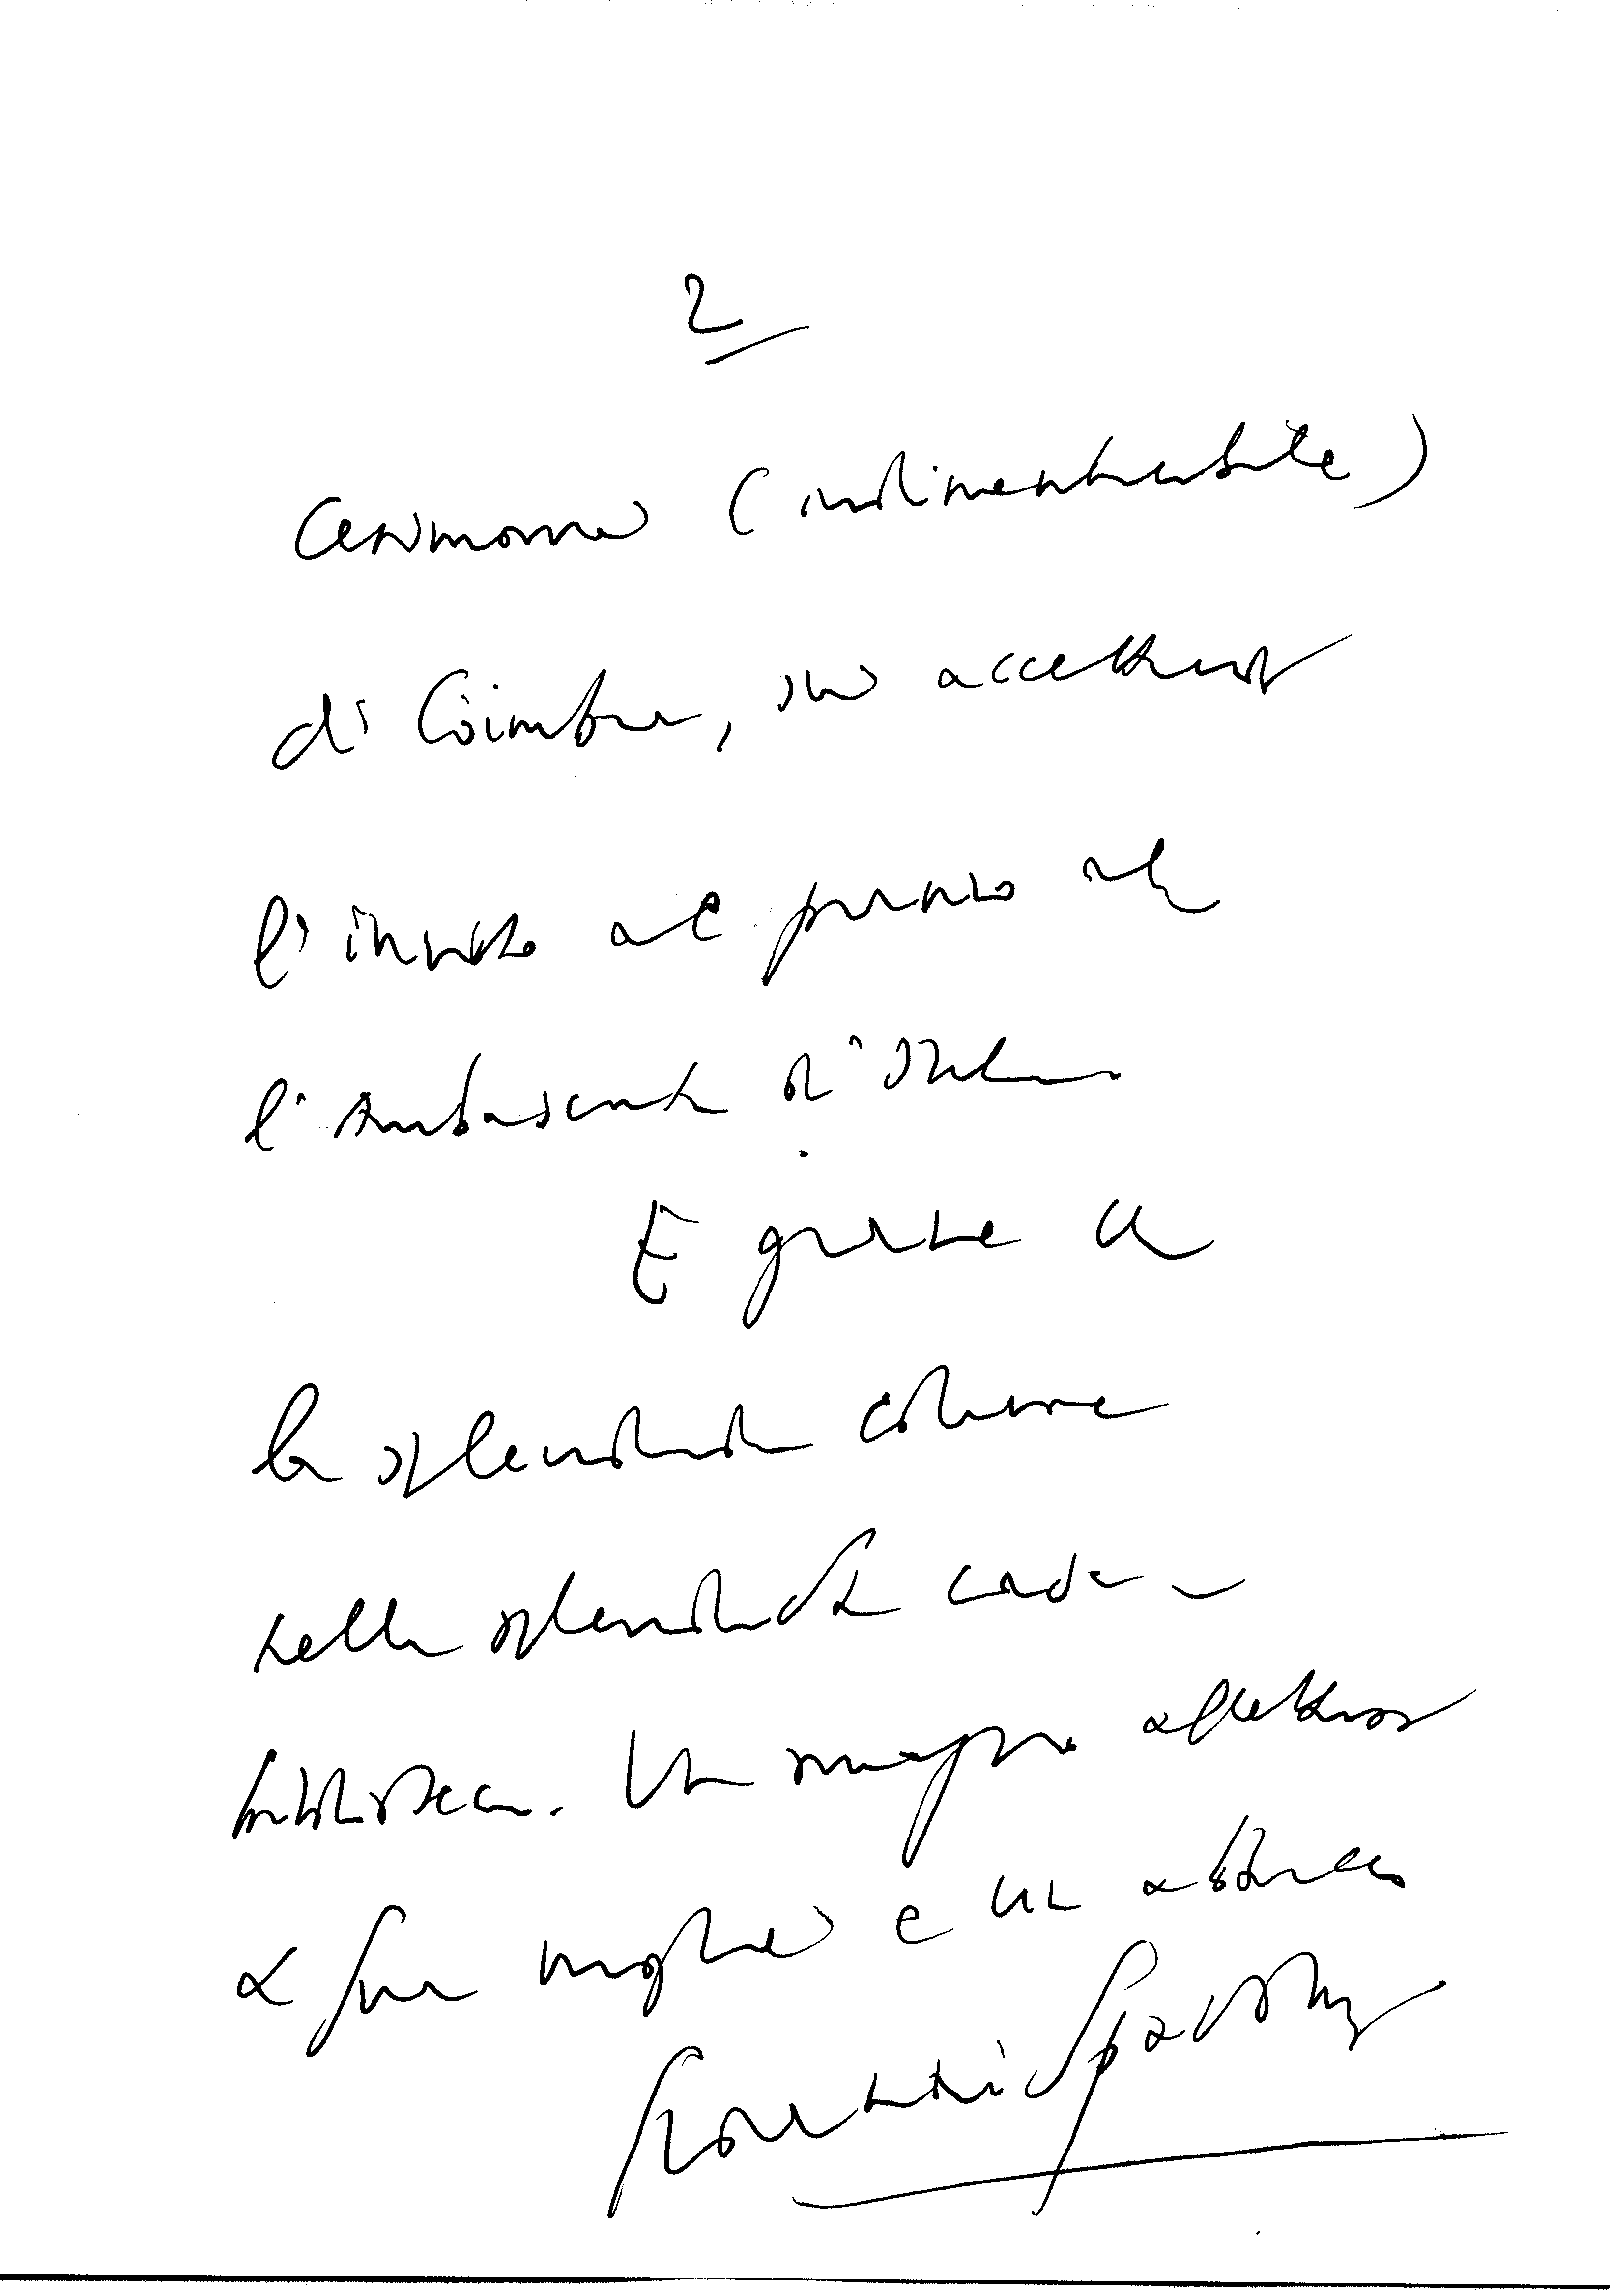 2
cerimonia (indimenticabile)
di Coimbra, sia accettando
l'invito al pranzo al
l'Ambasciata d'Italia
E grazie
la splendida
nella splendida casa -
biblioteca. Un affettuoso
a Sua moglie e un abbraccio
Giovanni Spadolini